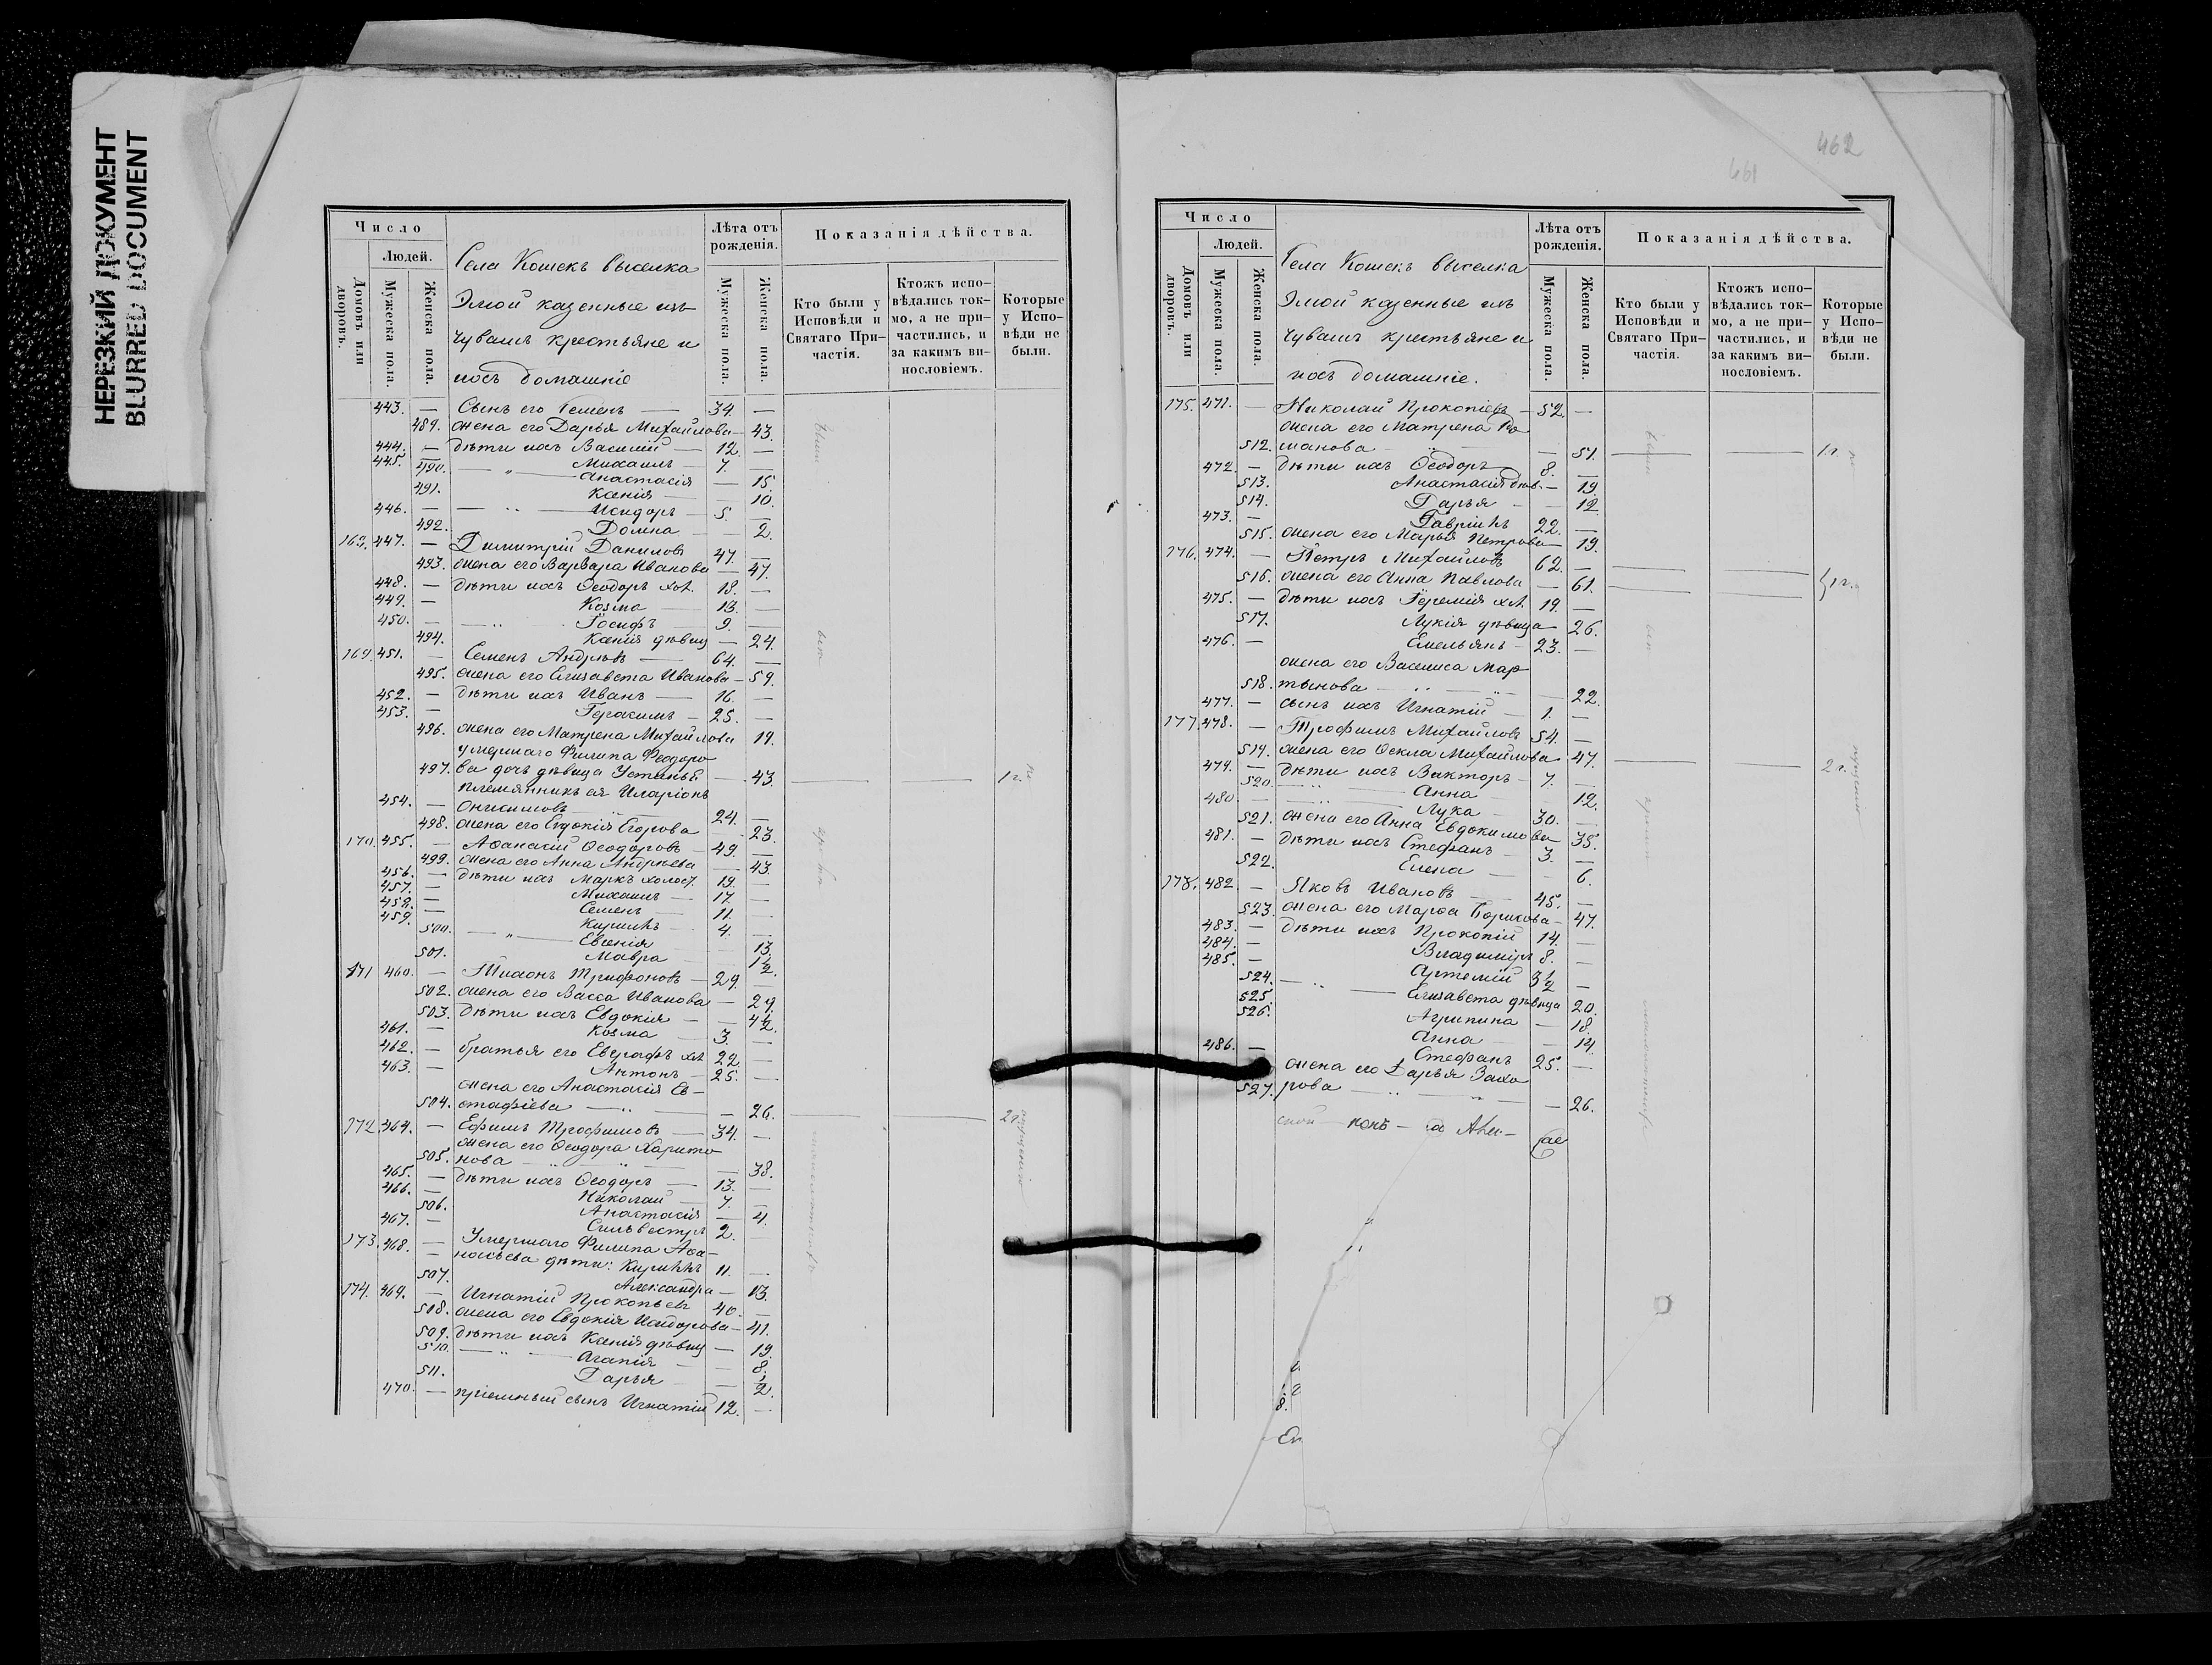 НЕРЕЗКИЙ ДОКУМЕНТ
BLURRED DOCUMENT
Число
Людей.
Домовъ или дворовъ.
Мужеска пола.
Женска пола.
Села Кошекъ выселка
Эмой казенные изъ
Чувашъ крестьяне и
ихъ домашніе
Лѣта отъ рожденія.
Мужеска пола.
Женска пола.
Показанія дѣйства.
Кто были у Исповѣди и Святаго Причастія.
Ктожъ исповѣдались токмо, а не причастились, и за какимъ винословіемъ.
Которые у Исповѣди не были.
443. — Сынъ его Семенъ — 34. —
489. жена его Дарья Михаилова — 43.
444. — дѣти ихъ Василий — 12. —
445. — Михаилъ — 7. —
490. — " — Анастасія — 15
491. Ксенія — 10.
446. — Исидоръ — 5. —
492. Домна — 2.
168. 447. — Димитрій Даниловъ 47. —
493. жена его Варвара Иванова — 47.
448. — дѣти ихъ Ѳеодоръ хол. 18. —
449. — Козма — 13. —
450. — Іосифъ — 9. —
494. Ксенія дѣвиц — 24.
169. 451. — Семенъ Андрѣевъ — 64. —
495. жена его Елизавета Иванова — 59.
452. — дѣти ихъ Иванъ — 16. —
453. — Герасимъ — 25. —
496. жена его Матрена Михаилова 19.
умершаго Филипа Феодоро
497. ва дочь дѣвица Устинья — 43. — — 1 г.
племянникъ ея Иларіонъ
454. — Онисимовъ 24. —
498. жена его Евдокія Егорова 23.
170. 455. — Аѳанасій Ѳеодоровъ — 49. —
499. жена его Анна Андрѣева — 43.
456. — дѣти ихъ Маркъ холост. 19. —
457. — Михаилъ — 17. —
458. — Семенъ 11. —
459. Кирилъ — 4. —
500. — " — Евгенія 13.
501. Мавра 1½
171 460. — Тихонъ Трифоновъ — 29. —
502. жена его Васса Иванова — 29.
503. дѣти ихъ Евдокія — 4½.
461. — Козма — 3. —
462. — братья его Евграфъ хол 22 —
463. — Антонъ — 25. —
жена его Анастасія Ев-
504. стафіева — " — 26. — — 2 г.
172. 464. — Ефимъ Трофимовъ — 34. —
жена его Ѳеодора Харито
505. нова — 38.
465. — дѣти ихъ Ѳеодоръ — 13. —
466. — Николай — 7. —
506. Анастасія — 4.
467. — Сильвестръ 2. —
173. 468. — Умершаго Филипа Аѳа-
— насьева дѣти: Кирилъ 11. —
507. Александра — 13.
174. 469. — Игнатій Прокопьевъ 40. —
508. жена его Евдокія Исидорова — 41.
509. дѣти ихъ Ксенія дѣвиц — 19.
510. — " — Агапія — 8.
511. Дарья — ½.
470. — пріемный сынъ Игнатій 12. —
461
462
Число
Людей.
Домовъ или дворовъ.
Мужеска пола.
Женска пола.
Села Кошекъ выселка
Эмой казенные изъ
Чувашъ крестьяне и
ихъ домашніе.
Лѣта отъ рожденія.
Мужеска пола.
Женска пола.
Показанія дѣйства.
Кто были у Исповѣди и Святаго Причастія.
Ктожъ исповѣдались токмо, а не причастились, и за какимъ винословіемъ.
Которые у Исповѣди не были.
175. 471. — Николай Прокопіевъ — 52. —
жена его Матрена Ро
512. манова — 51. — — 1 г.
472. — дѣти ихъ Ѳеодоръ 8. —
513. Анастасія дѣв. — 19.
514. Дарья — 12.
473. — Гавріилъ 22. —
515. жена его Марья Петрова — 19.
176. 474. — Петръ Михаиловъ 62. —
516. жена его Анна Павлова — 61. — — 1 г.
475. — дѣти ихъ Іеремія хол. 19. —
517. Лукія дѣвица — 26.
476. — Емельянъ — 23. —
жена его Василиса Мар
518. тынова — 22.
477. — сынъ ихъ Игнатій — 1. —
177. 478. — Трофимъ Михаиловъ 54. —
519. жена его Ѳекла Михаилова 47. — — 2 г.
479. — дѣти ихъ Викторъ — 7. —
520. Анна — 12.
480. — Лука — 30. —
521. жена его Анна Евдокимова 35.
481. — дѣти ихъ Стефанъ — 3. —
522. Елена — 6.
178. 482. — Яковъ Ивановъ — 45. —
523. жена его Марѳа Борисова — 47.
483. — дѣти ихъ Прокопій 14. —
484. — Владиміръ 8. —
485. — Артемій 3½ —
524. — Елизавета дѣвица 20.
525. Агрипина — 18.
526. Анна — 14
486. — Стефанъ 25. —
жена его Дарья Заха
527. рова — 26.